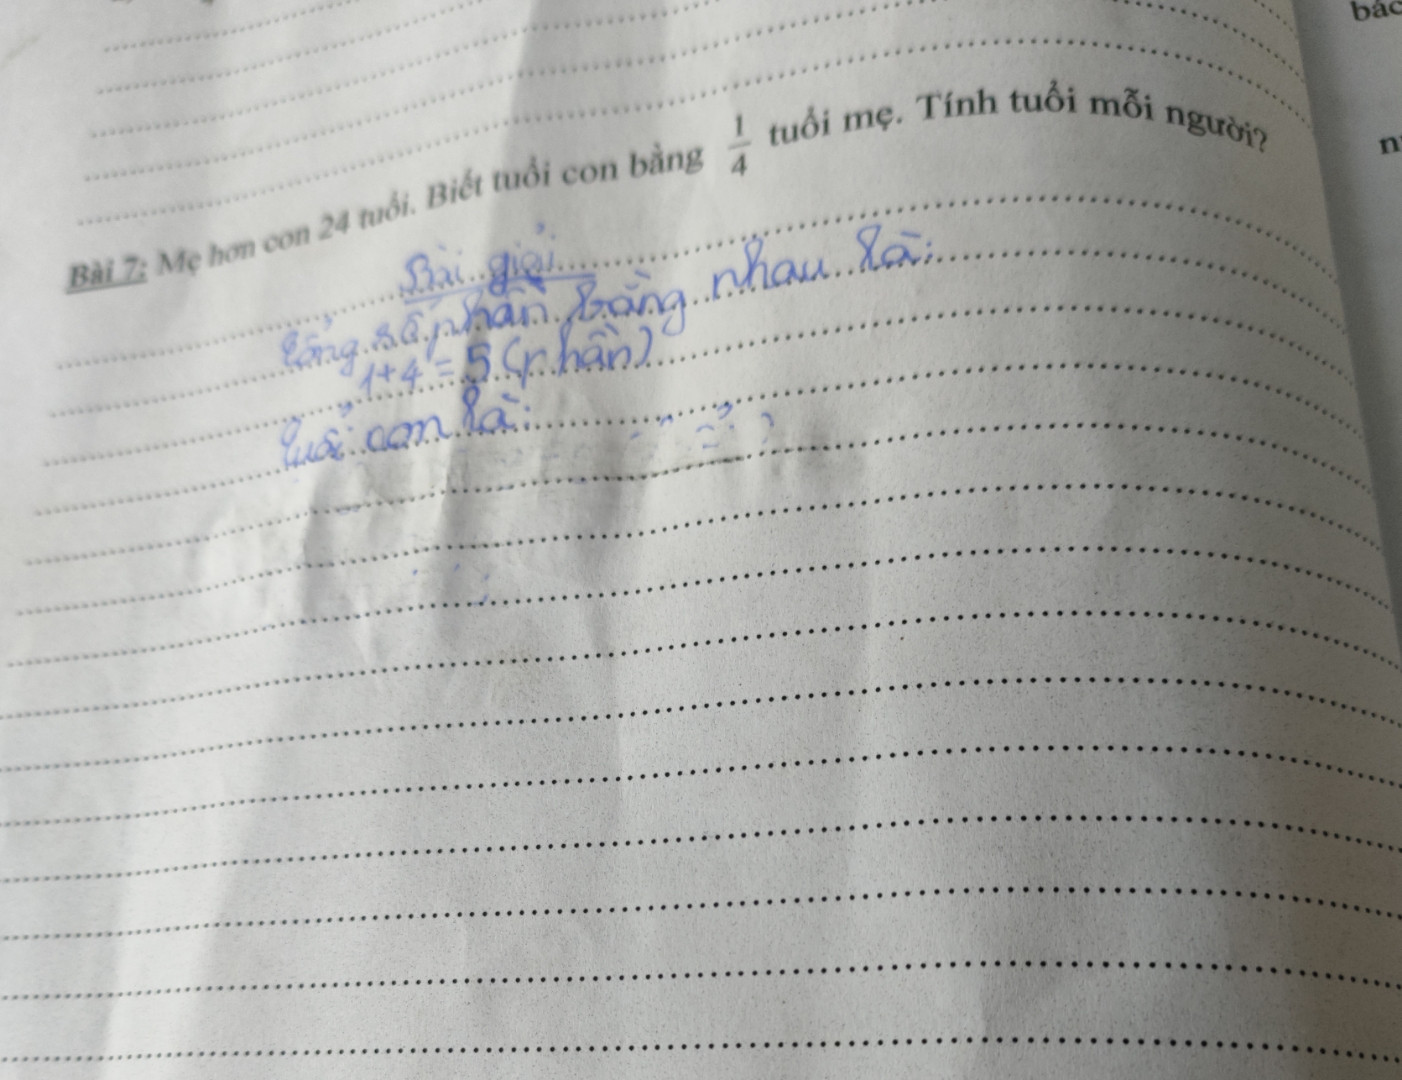 bác
n
Bài 7: Mẹ hơn con 24 tuổi. Biết tuổi con bằng 1/4 tuổi mẹ. Tính tuổi mỗi người?
Bài giải
Tổng số phần bằng nhau là:
1+4 = 5 (phần)
Tuổi con là: